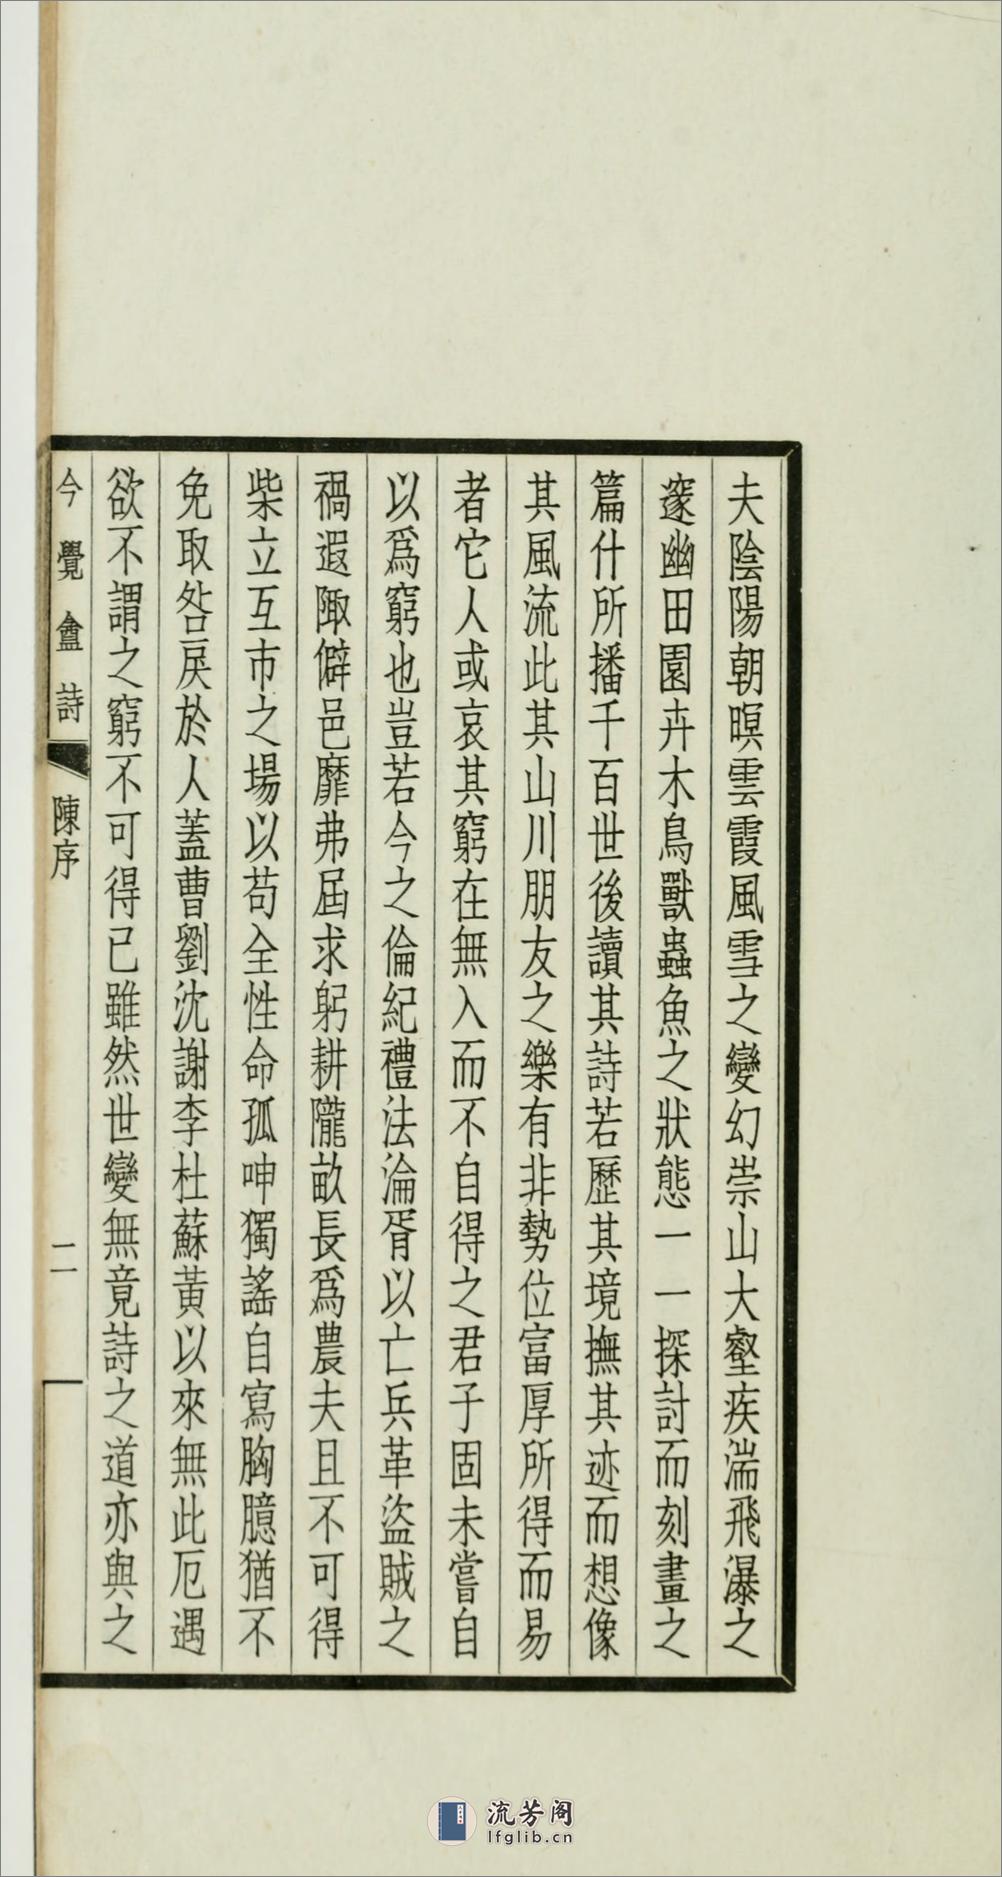 夫陰陽朝暝雲霞風雪之變幻崇山大壑疾湍飛瀑之
邃幽田園卉木鳥獸蟲魚之狀態一一探討而刻畫之
篇什所播千百世後讀其詩若歷其境撫其迹而想像
其風流此其山川朋友之樂有非勢位富厚所得而易
者它人或哀其窮在無入而不自得之君子固未嘗自
以爲窮也豈若今之倫紀禮法淪胥以亡兵革盜賊之
禍遐陬僻邑靡弗屆求躬耕隴畝長爲農夫且不可得
柴立互市之場以苟全性命孤呻獨謠自寫胸臆猶不
免取咎戾於人蓋曹劉沈謝李杜蘇黃以來無此厄遇
欲不謂之窮不可得已雖然世變無竟詩之道亦與之
今覺盦詩 陳序 二
流芳阁
lfglib.cn